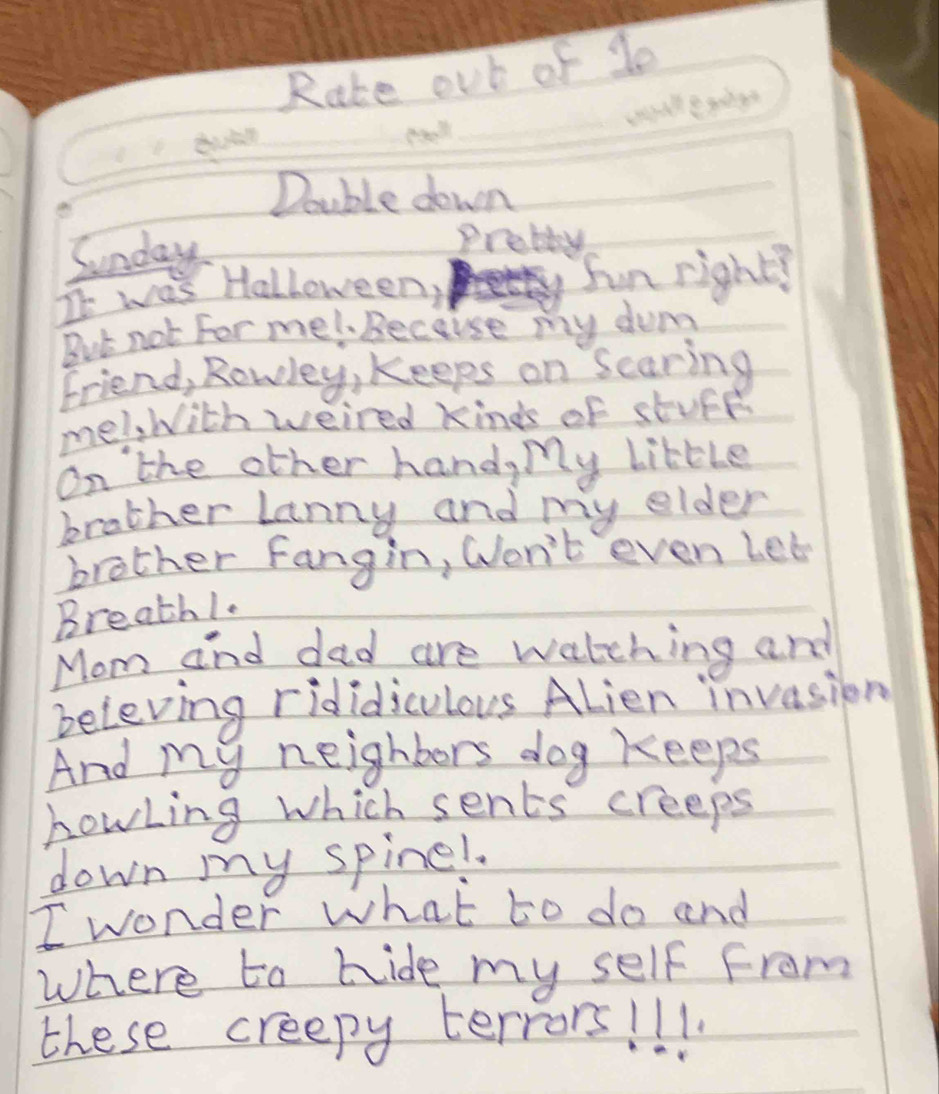 Rate out of 10
Double down
Sunday
Pretty
It was Halloween, Pretty fun right?
But not for me!. Because my dum
friend, Rowley, Keeps on Scaring
me!. With weired kinds of stuff.
On the other hand, My little
brother Lanny and my elder
brother Fangin, Won't even Let
Breath!.
Mom and dad are watching and
beleving rididiculous ALien invasion
And my neighbors dog Keeps
howling which sents creeps
down my spine!.
I wonder what to do and
where to hide my self from
these creepy terrors!!!.